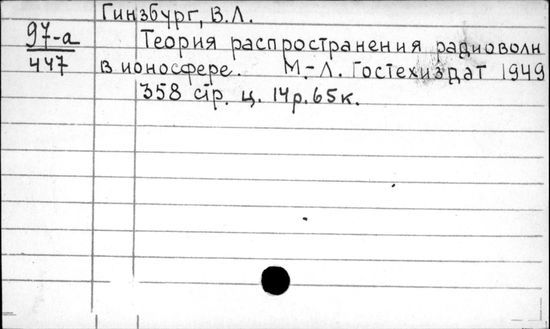 Гинзбург, В.Л.
97-а
447
Теория распространения радиоволн
в ионосфере. М.-Л. Гостехиздат 1949
358 стр. ц. 14р. 65к.